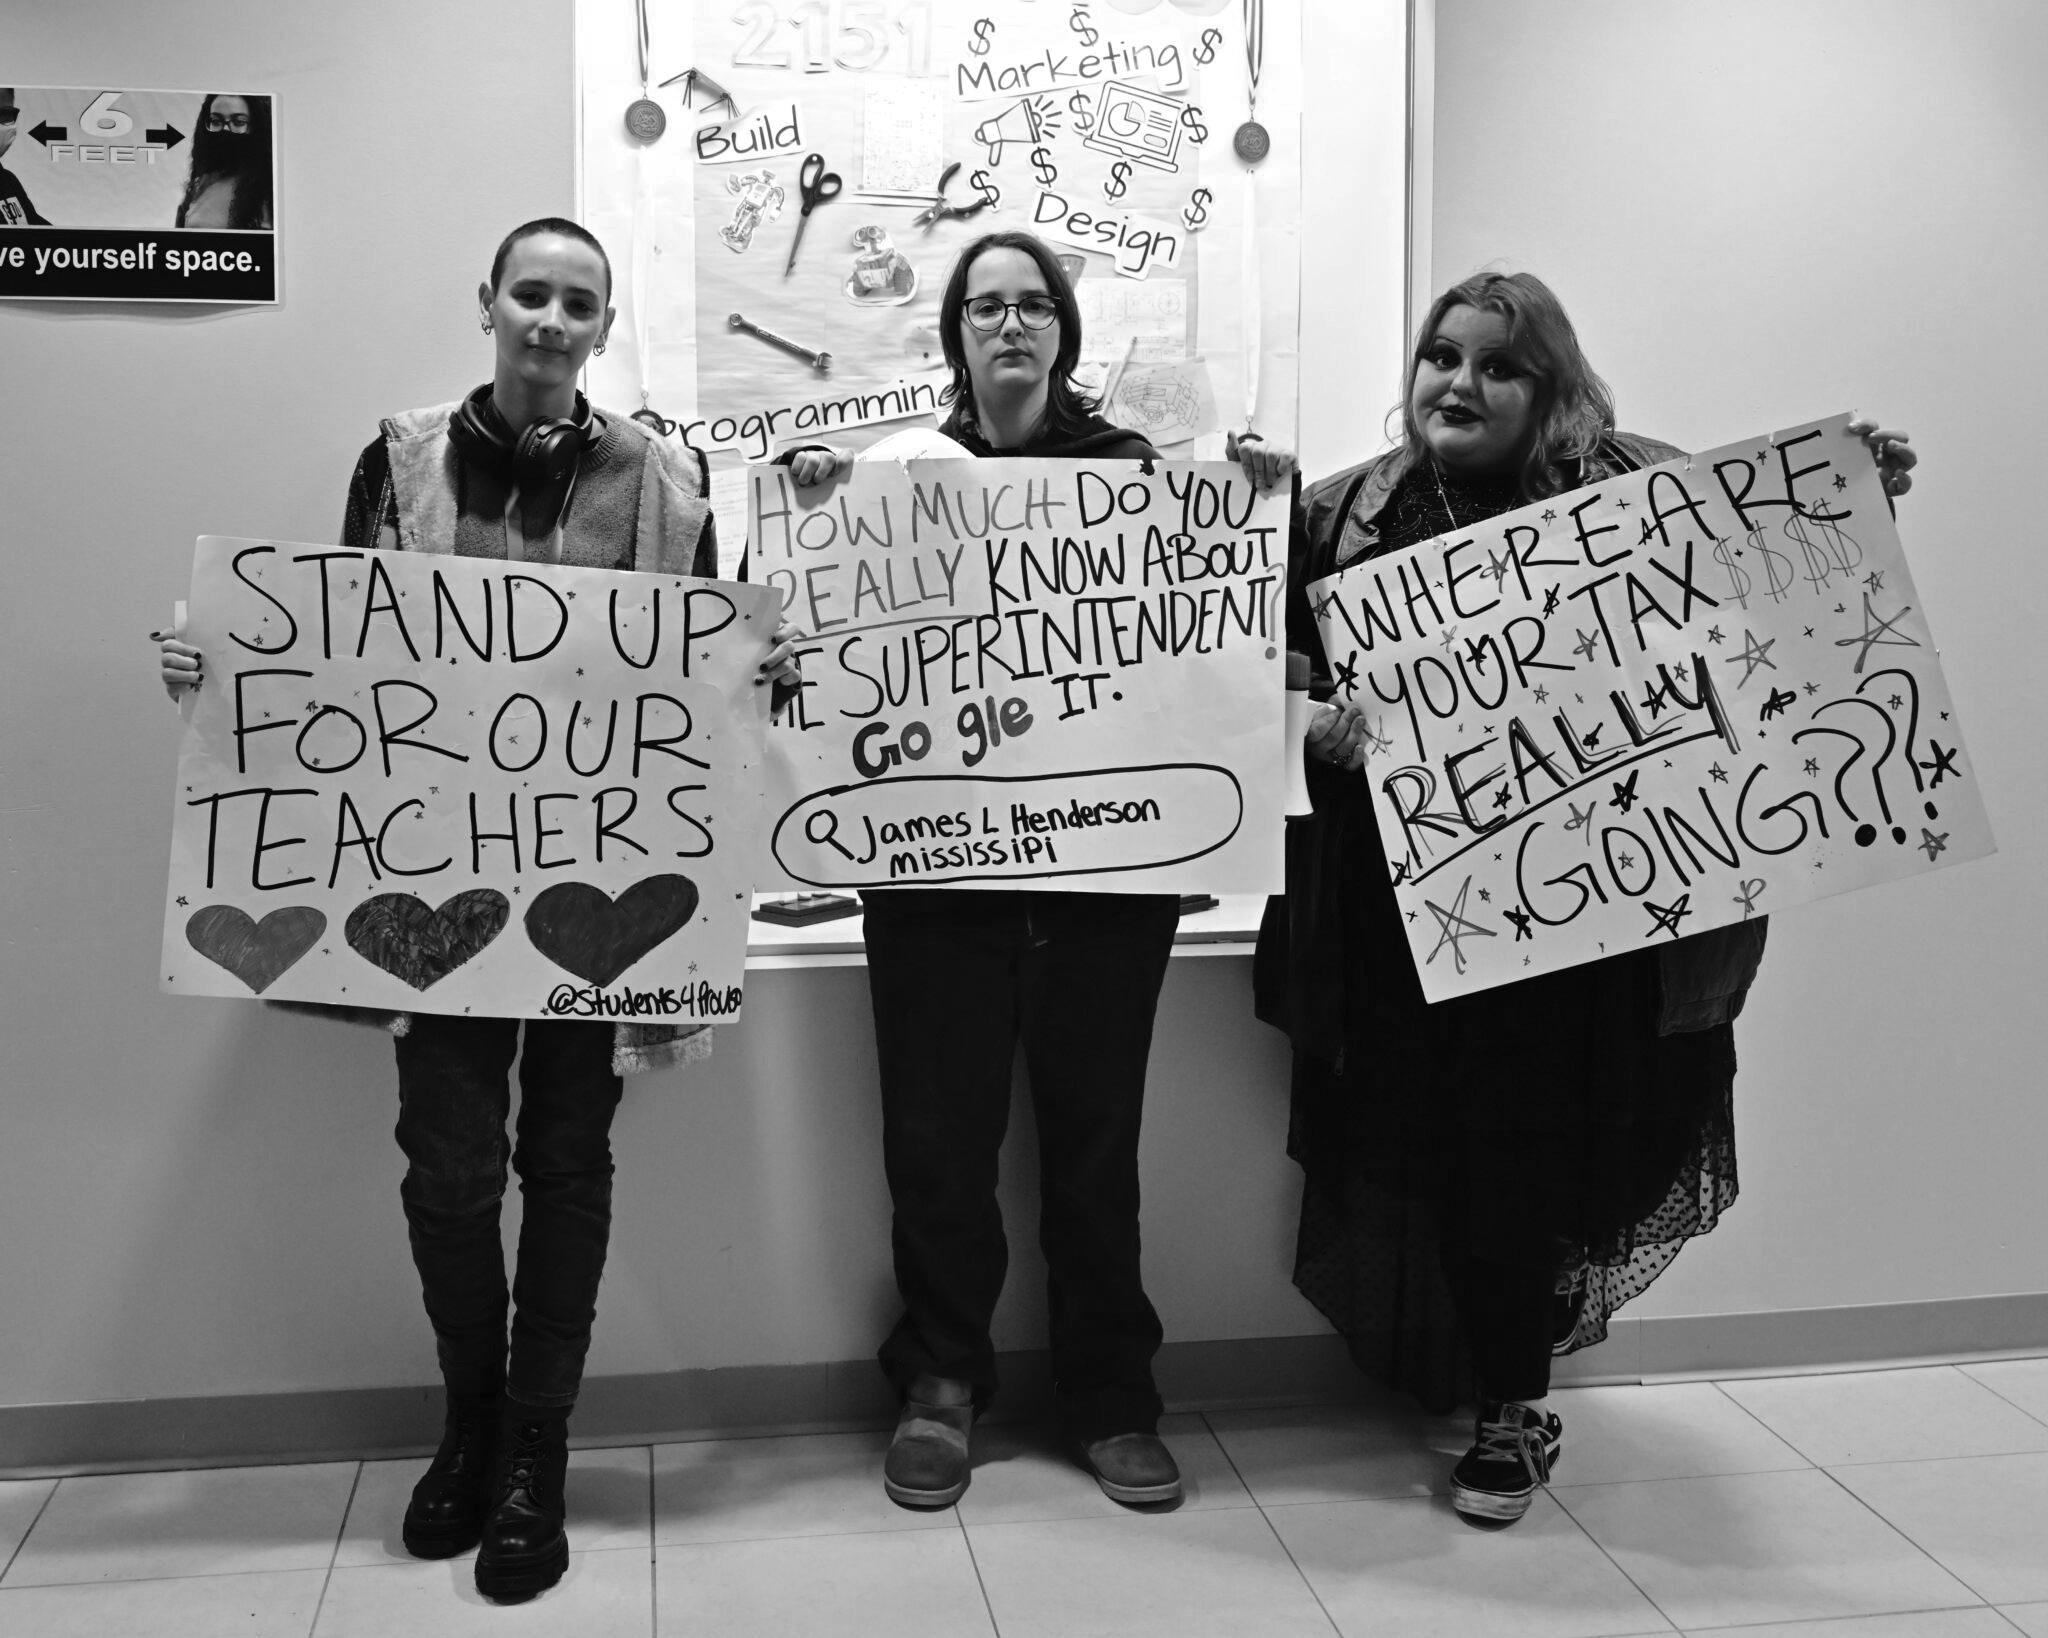 6
FEET
ve yourself space.
2151
Marketing
Build
Design
Programming
STAND UP
FOR OUR
TEACHERS
@Students4Provo
HOW MUCH DO YOU
REALLY KNOW ABOUT
HE SUPERINTENDENT?
Google IT.
James L Henderson
mississipi
WHERE ARE
YOUR TAX $$$$
REALLY
GOING???